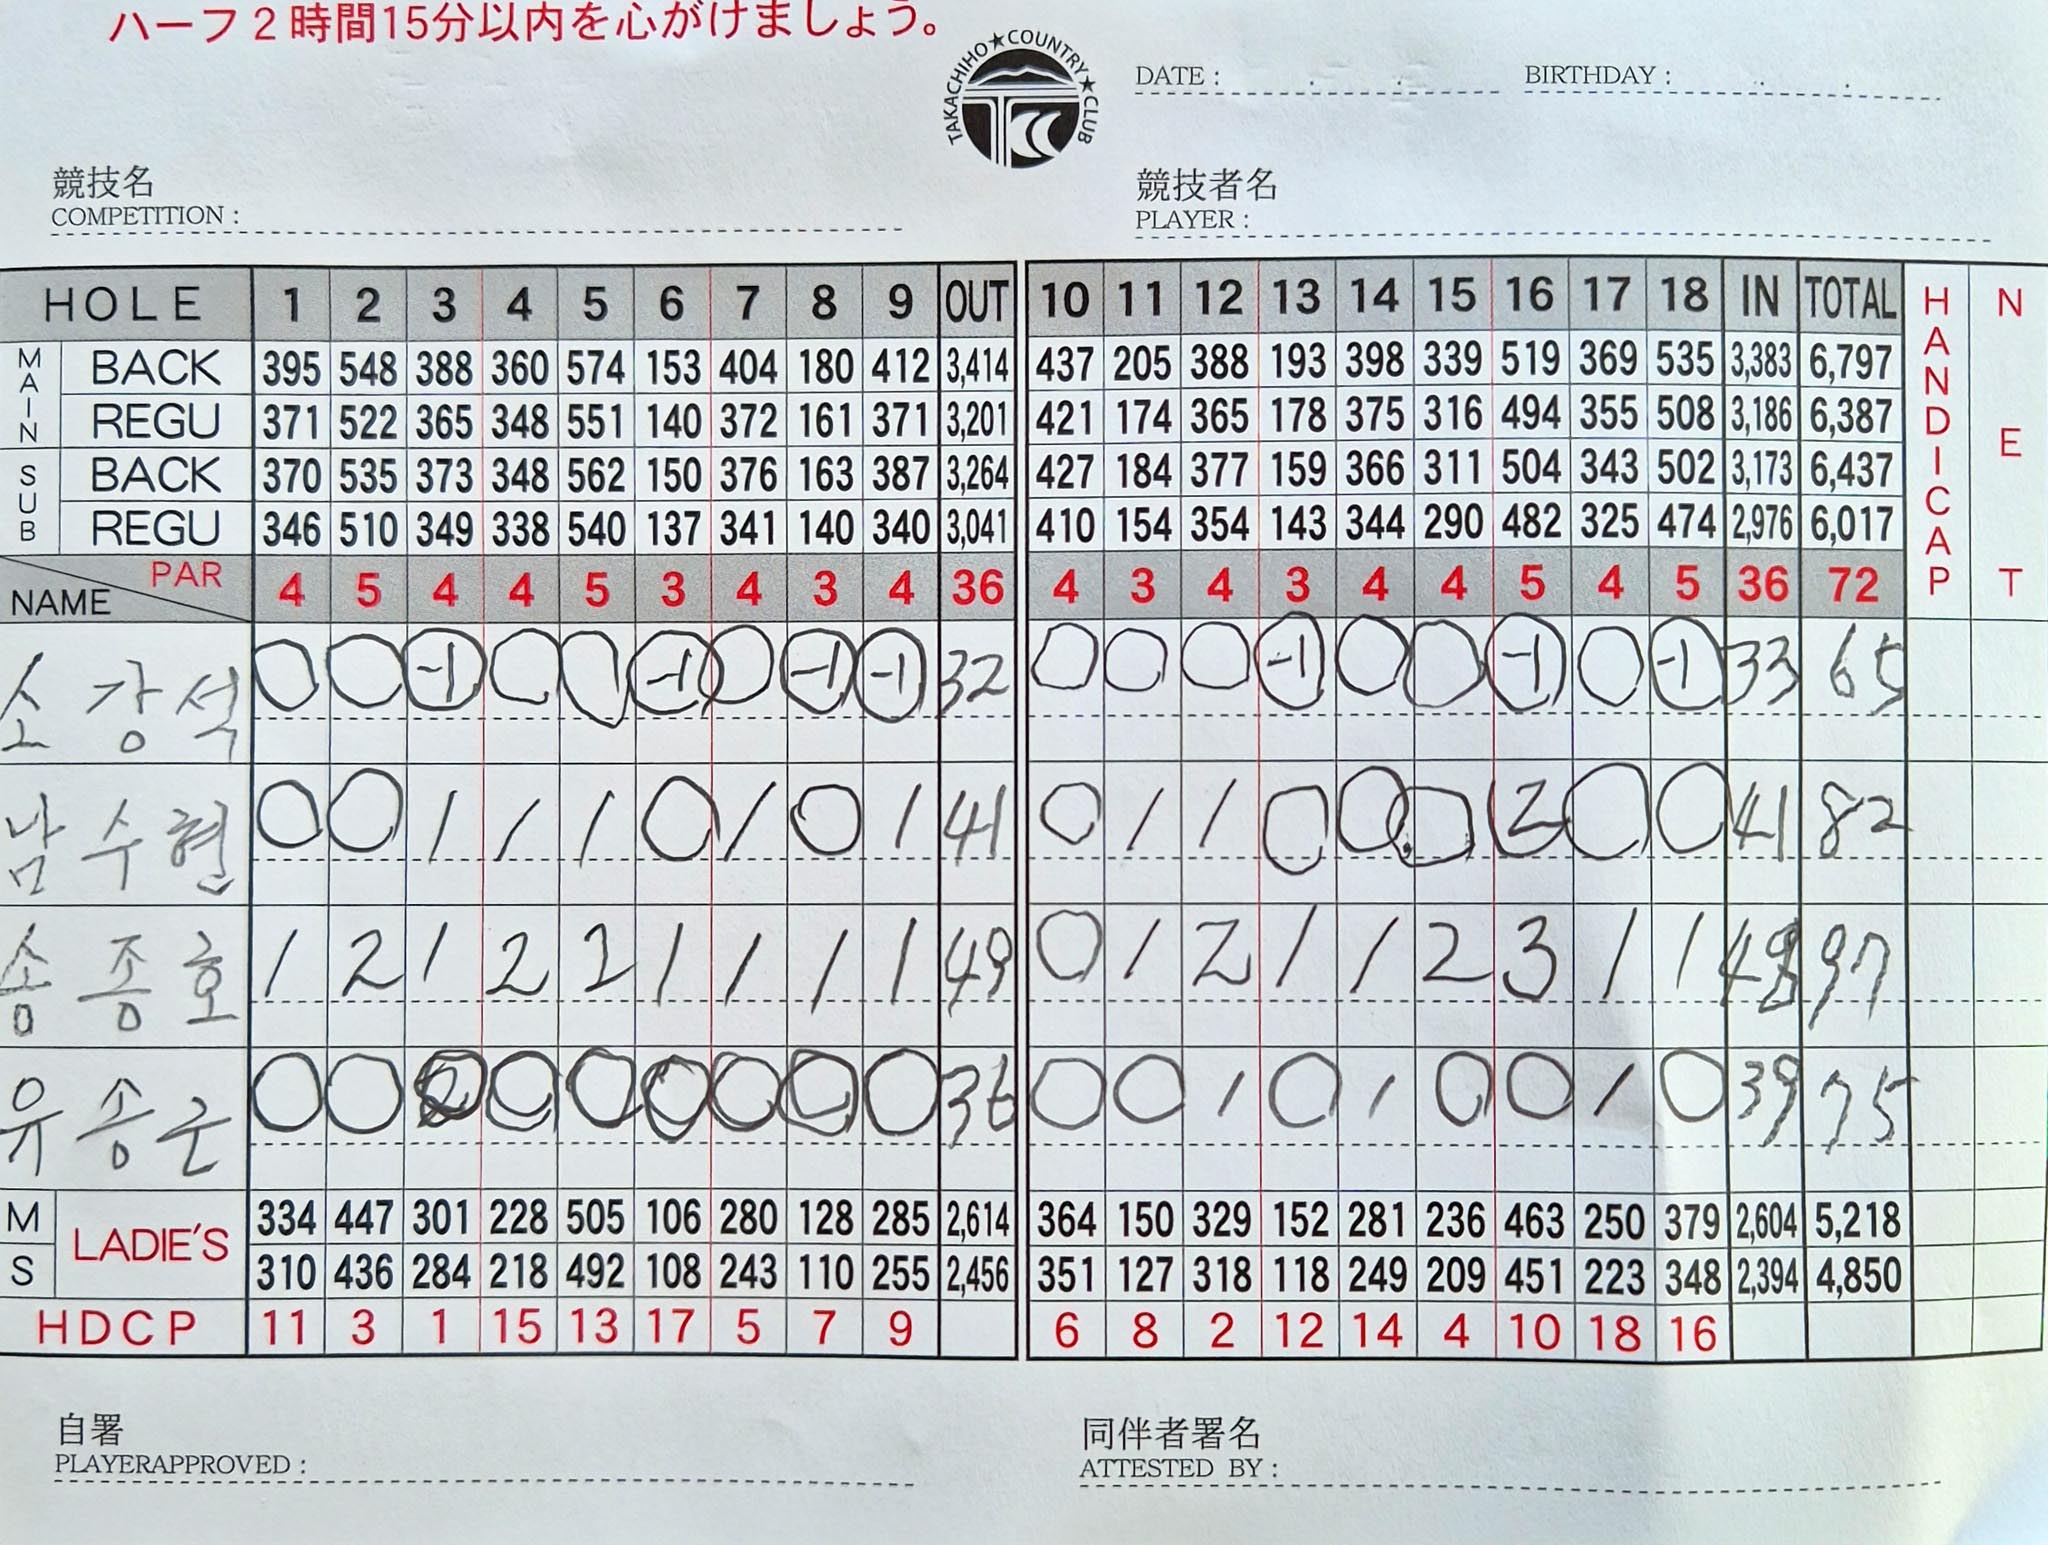 ハーフ2時間15分以内を心がけましょう。
TAKACHIHO★COUNTRY★CLUB
DATE : . . BIRTHDAY : . .
競技名 競技者名
COMPETITION : PLAYER :
HOLE 1 2 3 4 5 6 7 8 9 OUT 10 11 12 13 14 15 16 17 18 IN TOTAL HANDICAP NET
MAIN BACK 395 548 388 360 574 153 404 180 412 3,414 437 205 388 193 398 339 519 369 535 3,383 6,797
REGU 371 522 365 348 551 140 372 161 371 3,201 421 174 365 178 375 316 494 355 508 3,186 6,387
SUB BACK 370 535 373 348 562 150 376 163 387 3,264 427 184 377 159 366 311 504 343 502 3,173 6,437
REGU 346 510 349 338 540 137 341 140 340 3,041 410 154 354 143 344 290 482 325 474 2,976 6,017
NAME PAR 4 5 4 4 5 3 4 3 4 36 4 3 4 3 4 4 5 4 5 36 72
소강석 0 0 -1 0 0 -1 0 -1 -1 32 0 0 0 -1 0 0 -1 0 -1 33 65
남수현 0 0 1 1 1 0 1 0 1 41 0 1 1 0 0 0 2 0 0 41 82
송종호 1 2 1 2 2 1 1 1 1 49 0 1 2 1 1 2 3 1 1 48 97
유송근 0 0 0 0 0 0 0 0 36 0 0 1 0 1 0 0 1 0 39 75
M LADIE'S 334 447 301 228 505 106 280 128 285 2,614 364 150 329 152 281 236 463 250 379 2,604 5,218
S 310 436 284 218 492 108 243 110 255 2,456 351 127 318 118 249 209 451 223 348 2,394 4,850
HDCP 11 3 1 15 13 17 5 7 9 6 8 2 12 14 4 10 18 16
自署 同伴者署名
PLAYERAPPROVED : ATTESTED BY :